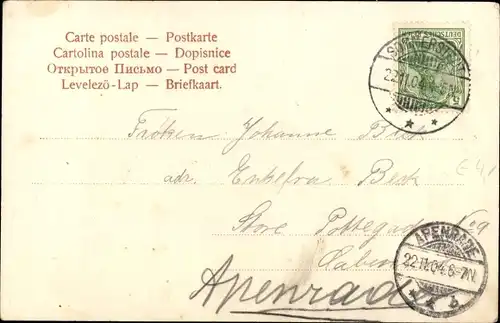 Carte postale — Postkarte
Cartolina postale — Dopisnice
Открытое Письмо — Post card
Levelező-Lap — Briefkaart.
DEUTSCHES
22.11.04.
Frøken Johanne Beck
adr. Enkefru Beck
Store Pottegade No 9
Apenrade
APENRADE
22.11.04.6-7N.